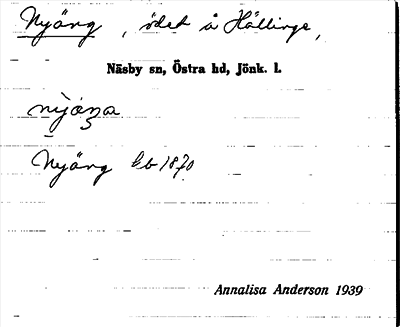 Nyäng, ödet å Hällinge,
Näsby sn, Östra hd, Jönk. l.
Nyäng hb 1870
Annalisa Anderson 1939